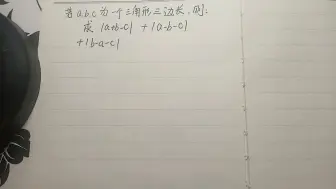 若a,b,c为一个三角形三边长,则:
求 |a+b-c| + |a-b-c|
+|b-a-c|